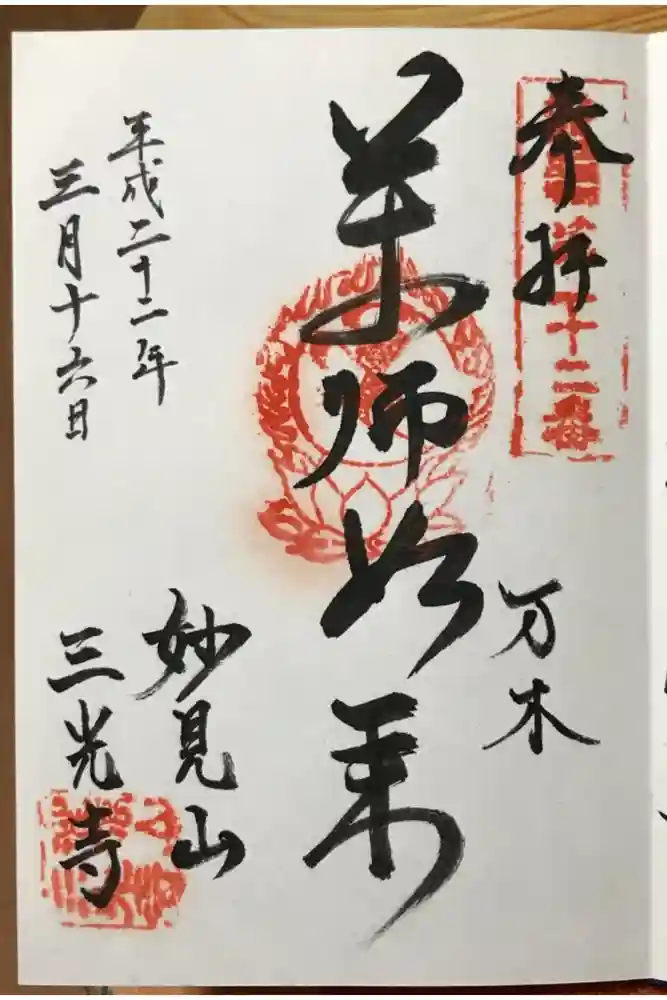 奉拝
万木
薬師如来
平成二十二年
三月十六日
妙見山
三光寺
十二番